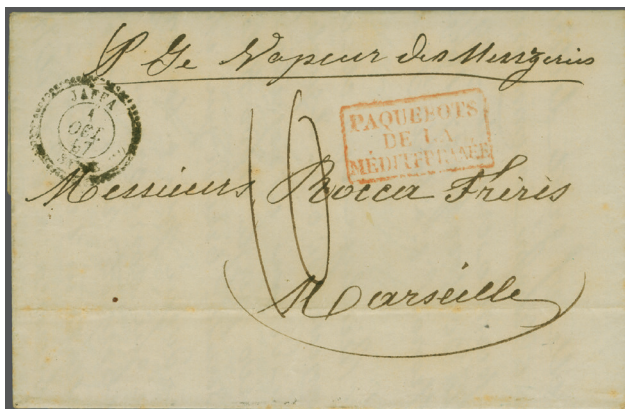 P Ge Vapeur des Messageries
JAFFA
1
OCT.
57
PAQUEBOTS
DE LA
MÉDITERRANÉE
Messieurs Rocca Frères
16
Marseille